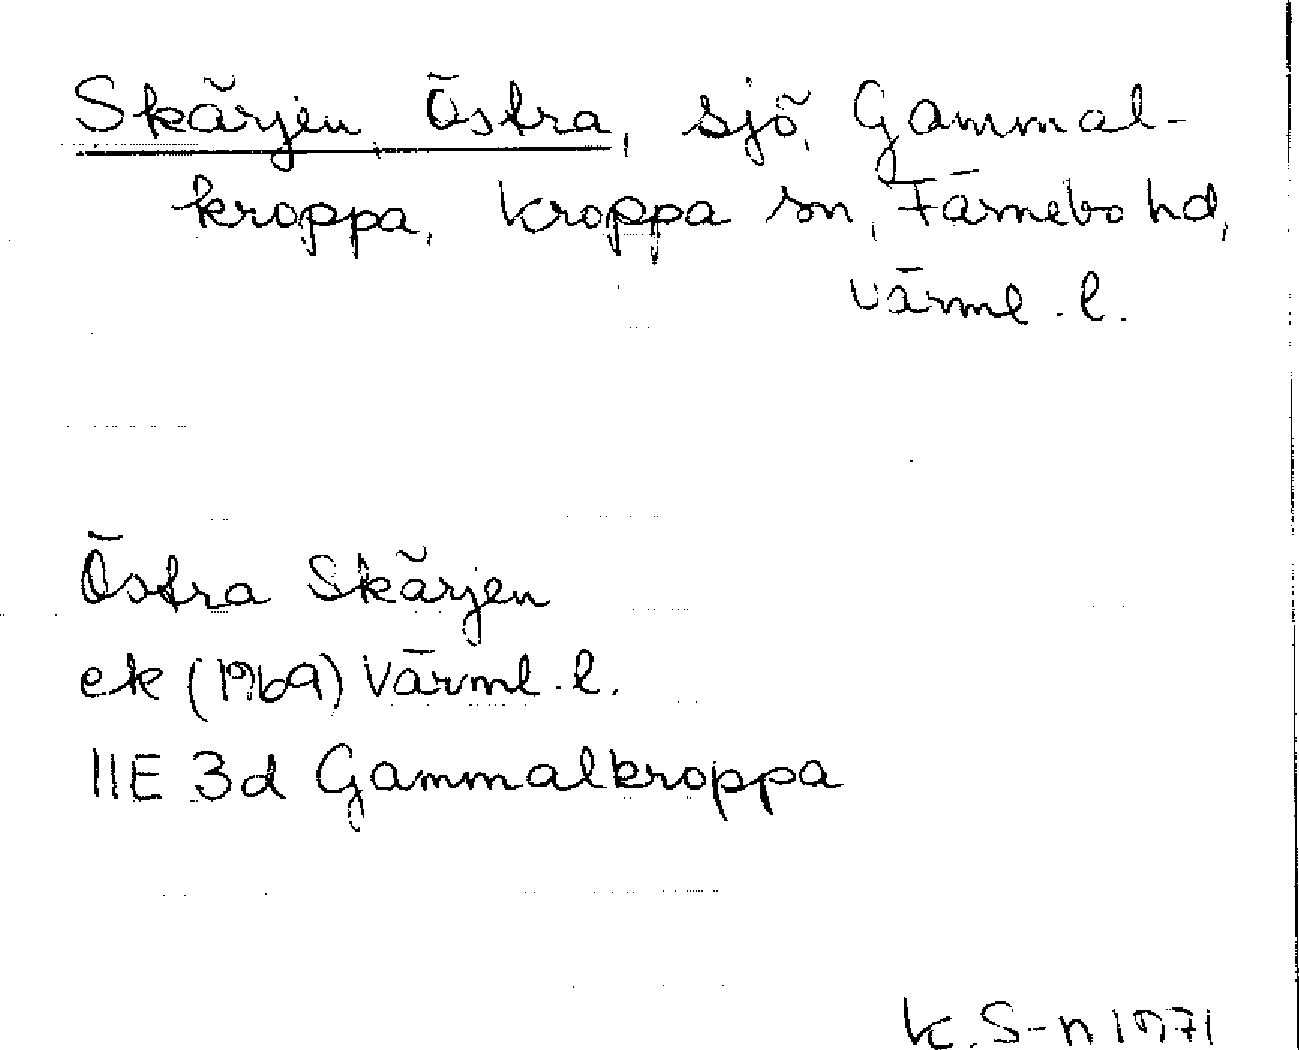 Skärjen, Östra, sjö, Gammal-
kroppa, Kroppa sn, Färnebo hd,
Värml. l.
Östra Skärjen
ek (1969) Värml. l.
11E 3d Gammalkroppa
K. S-n 1971